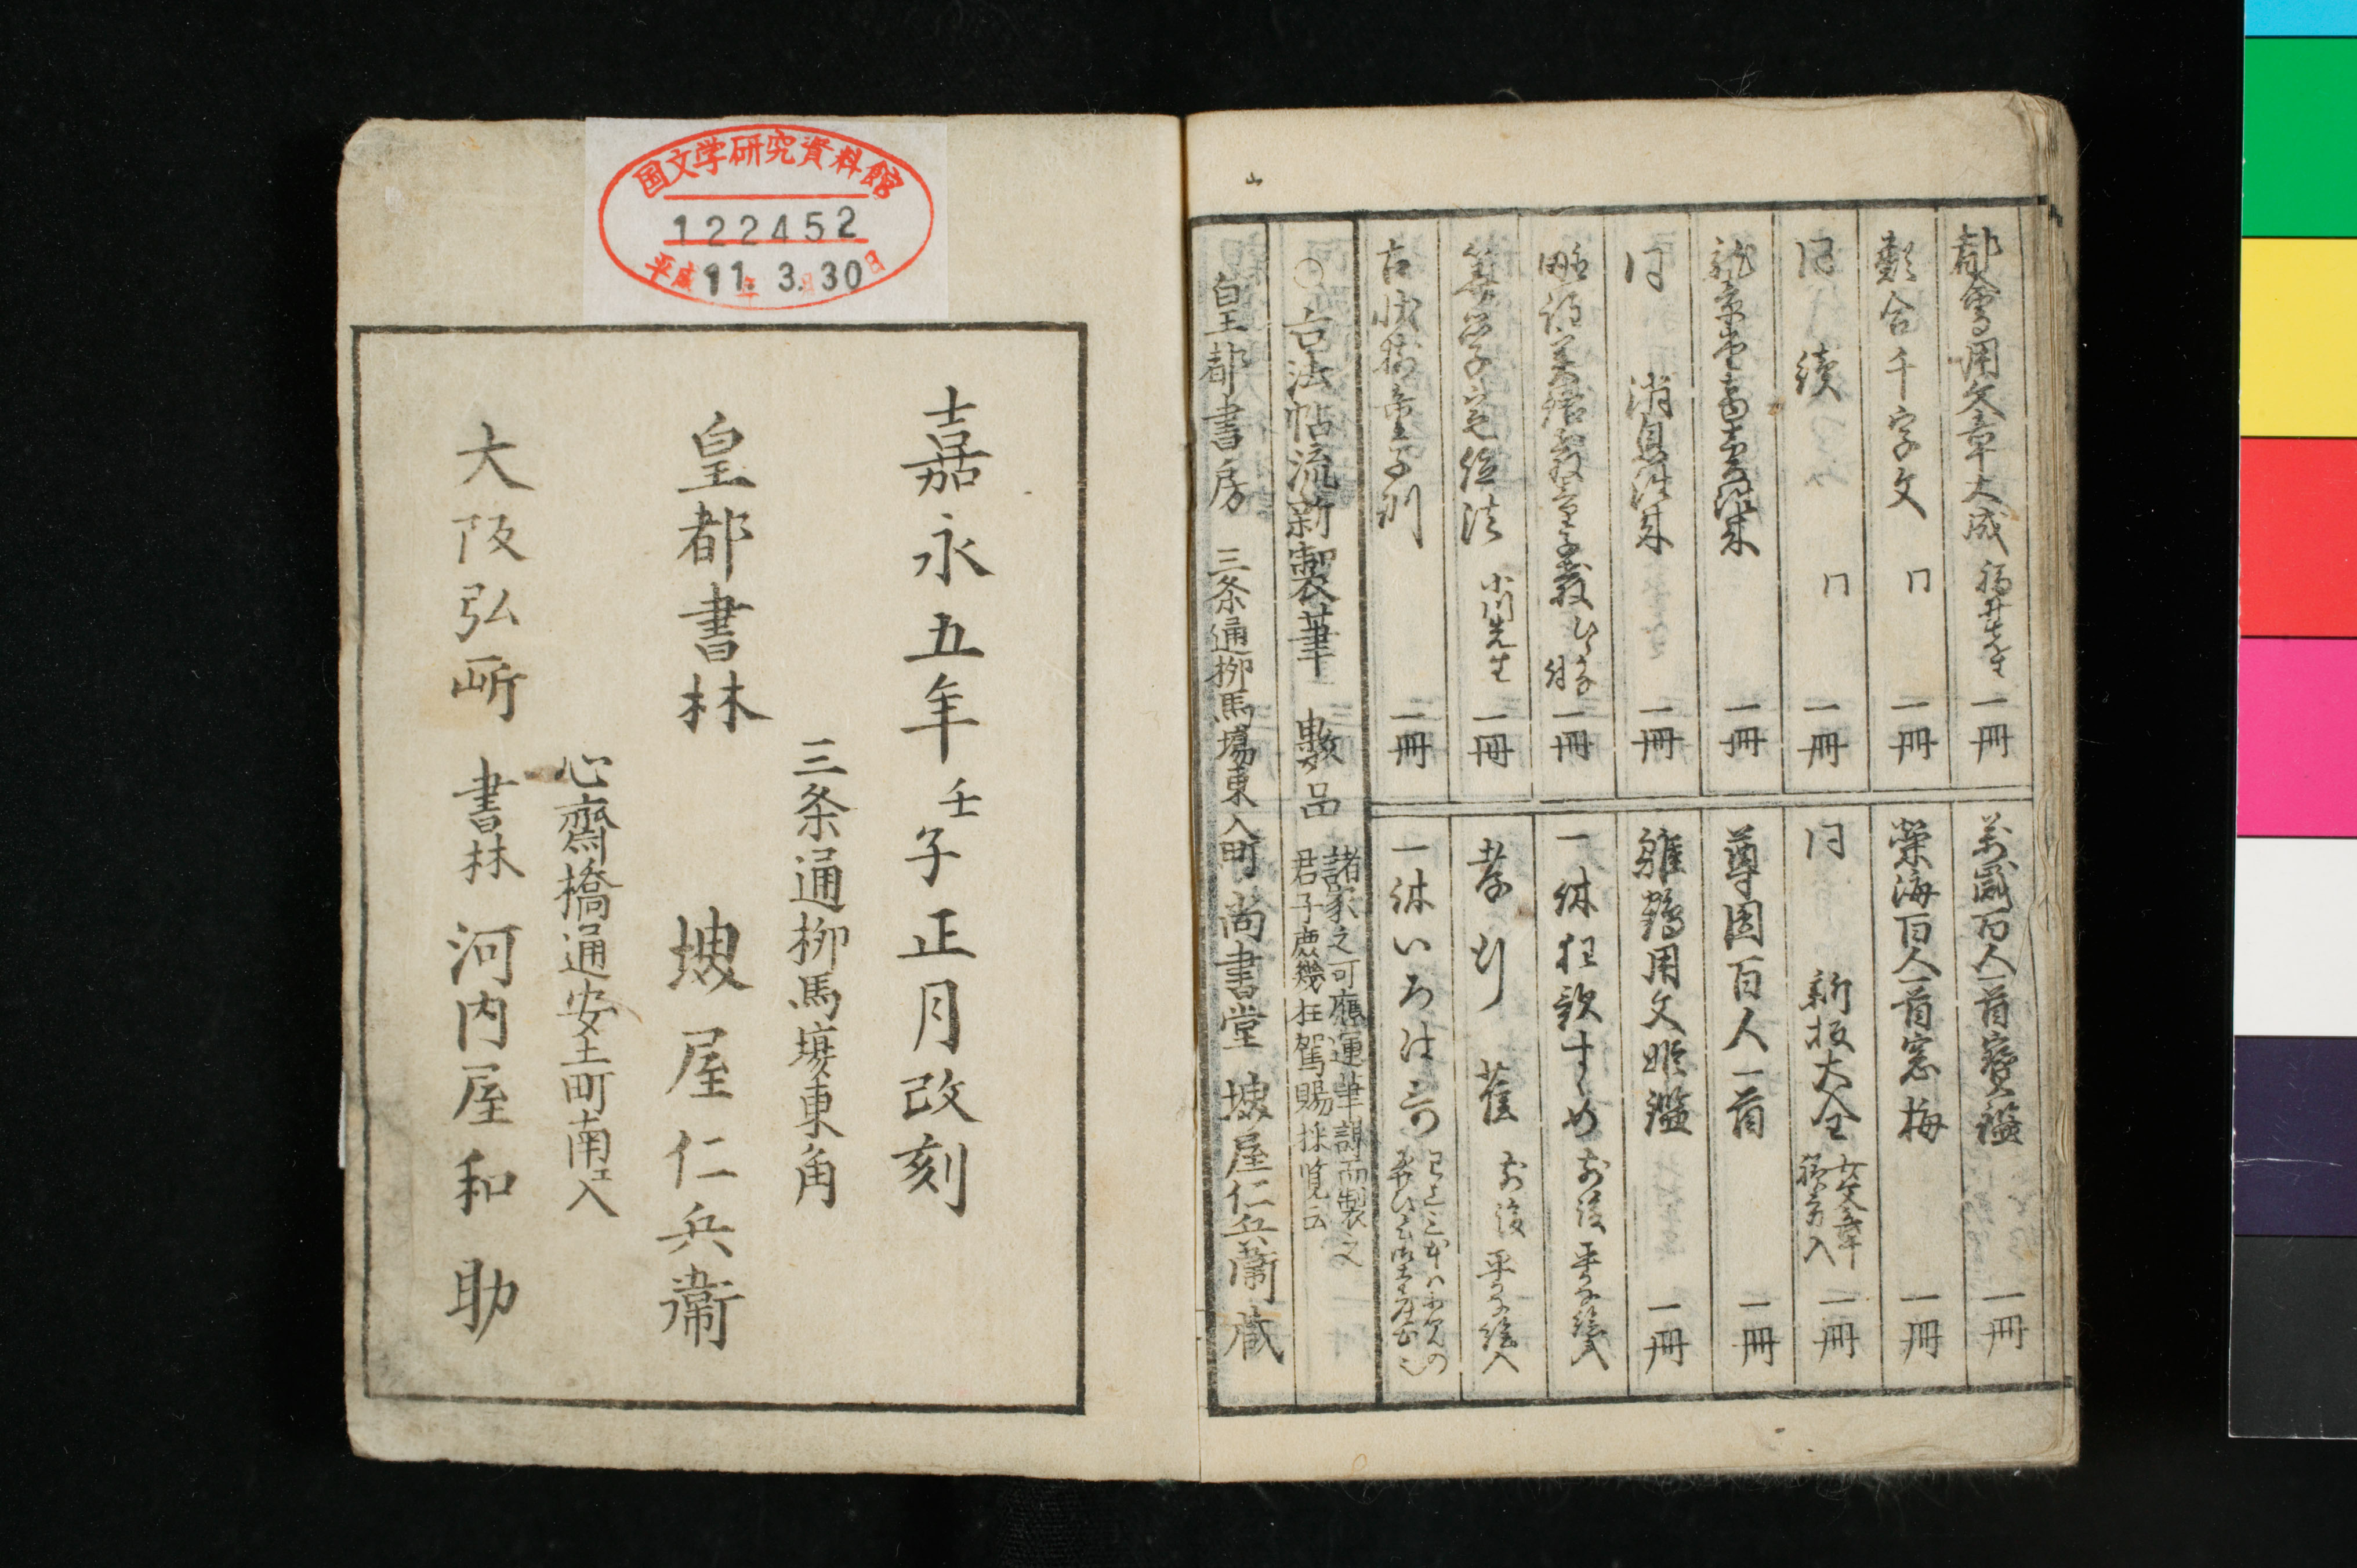 都會用文章大成 福井先生 一冊
類合千字文 仝 一冊
同 續 仝 一冊
龍章堂書素讀往来 一冊
同 消息往来 一冊
一冊
算学定位法 小川先生 一冊
古状揃童子訓 一冊
萬歳百人一首寳鑑 一冊
栄海百人一首窓梅 一冊
同 新板大全 女文章 入 一冊
尊圓百人一首 一冊
雛鶴用文姫鑑 一冊
一休狂歌すゝめ 前後 平かな絵入
孝行 前後 平かな絵入
一休いろは哥
○古法帖流新製筆 數品 諸家之可應運筆調而製之
君子庶幾枉駕賜採覧云
皇都書房 三条通柳馬場東入町 尚書堂 堺屋仁兵衛蔵
国文学研究資料館
122452
平成11.3.30
嘉永五年壬子正月改刻
三条通柳馬場東角
皇都書林 堺屋仁兵衛
心齋橋通安土町南エ入
大阪弘所 書林 河内屋和助